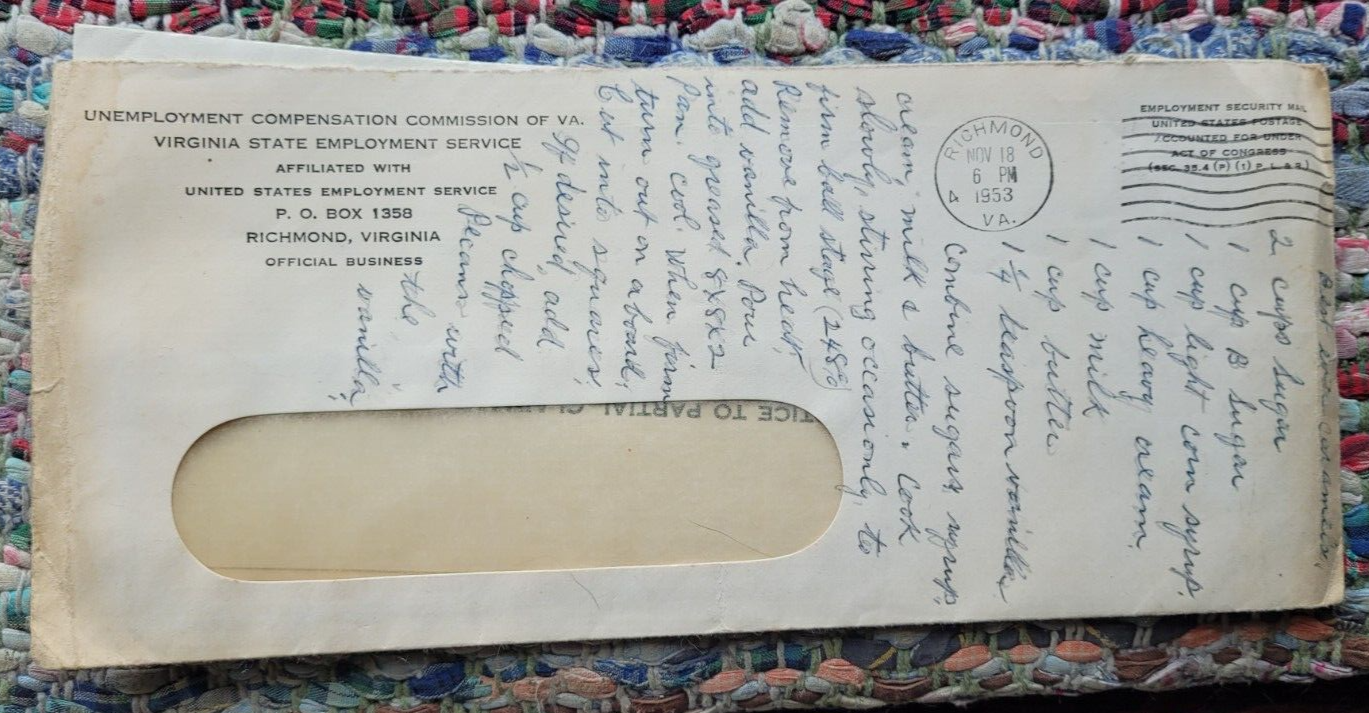 UNEMPLOYMENT COMPENSATION COMMISSION OF VA.
VIRGINIA STATE EMPLOYMENT SERVICE
AFFILIATED WITH
UNITED STATES EMPLOYMENT SERVICE
P. O. BOX 1358
RICHMOND, VIRGINIA
OFFICIAL BUSINESS
RICHMOND
NOV 18
6 PM
1953
4 VA.
EMPLOYMENT SECURITY MAIL
UNITED STATES POSTAGE
ACCOUNTED FOR UNDER
ACT OF CONGRESS
(SEC. 35.4 (P) (1) P. L. & R.)
TICE TO PARTIAL CLAIM
Best caramels
2 cups sugar
1 cup B sugar
1 cup light corn syrup.
1 cup heavy cream.
1 cup milk
1 cup butter
1 1/4 teaspoon vanilla
Combine sugars, syrup,
cream, milk & butter. Cook
slowly, stirring occasionly, to
firm ball stage (248°)
Remove from heat,
add vanilla. Pour
into greased 8X8X2
pan. Cool. When firm
turn out on a board.
Cut into squares.
If desired, add
1/2 cup chopped
Pecans with
the
vanilla.